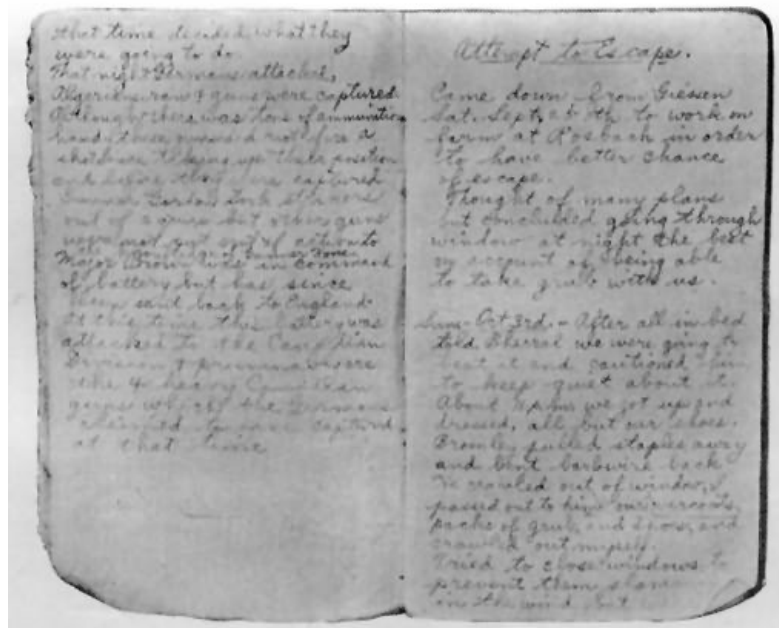 that time decided what they
were going to do.
That night Germans attacked,
Algeriens ran & guns were captured.
Although there was tons of ammunition
hand these gunners did not fire a
shot
and before they were captured
Gunner Gordon
out of a guns but other guns
were not put out of action to
Major Brown was in command
of battery but has since
been sent back to England.
At this time this battery was
attached to the Canadian
Division &
the 4 heavy Canadian
guns which the Germans
claimed to have captured
at that time
Attempt to Escape.
Came down from Giessen
Sat. Sept. 25th to work on
farm at Rosbach in order
to have better chance
of escape.
Thought of many plans
but concluded going through
window at night the best
on account of being able
to take grub with us.
Sun. Oct 3rd. - After all in bed
told Sherral we were going to
beat it and cautioned him
to keep quiet about it.
About we got up and
dressed, all but our shoes.
Bromley pulled staples away
and bent barbwire back
He crawled out of window, I
passed out to him our overcoats,
packs of grub, and shoes, and
crawled out myself.
Tried to close windows to
prevent them
in the wind but